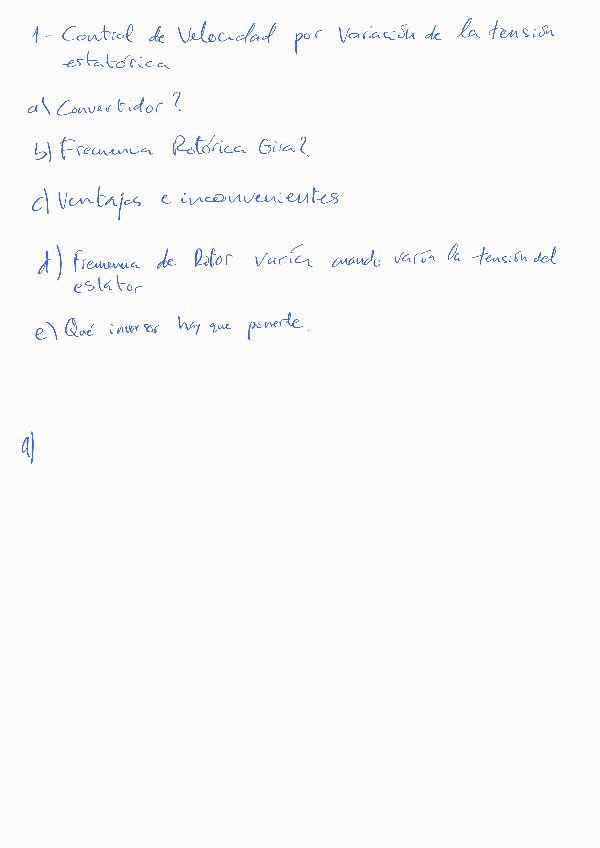 1- Control de Velocidad por Variación de la tensión
estatórica
a) Convertidor?
b) Frecuencia Rotórica Gira?
c) Ventajas e inconvenientes
d) Frecuencia de Rotor varía cuando varía la tensión del
estator
e) Qué inversor hay que ponerle.
a)